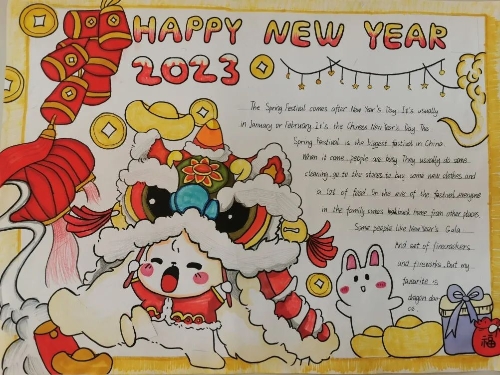 HAPPY NEW YEAR
2023
The Spring Festival comes after New Year's Day. It's usually
in January or February. It is the Chinese New Year's Day. The
Spring Festival is the biggest festival in China.
When it come people are busy. They usually do some
cleaning, go to the stores to buy some new clothes and
a lot of food. On the eve of the festival, everyone
in the family comes home from other places.
Some people like New Year's Gala
And set of firecrackers
and fireworks. But my
favourite is
dragon dan
ce.
福